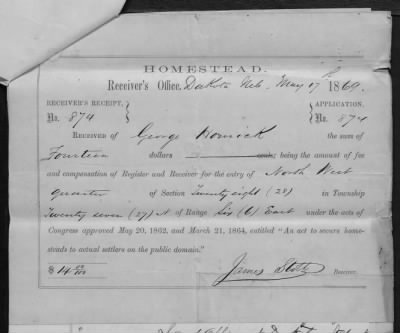 HOMESTEAD.
Receiver's Office, Dakota Neb. May 17th 1869.
RECEIVER'S RECEIPT, APPLICATION,
No. 874 No. 874
RECEIVED OF George the sum of
Fourteen dollars cents; being the amount of fee
and compensation of Register and Receiver for the entry of North West
quarter of Section Twenty eight (28) in Township
Twenty seven (27) N of Range Six (6) East under the acts of
Congress approved May 20, 1862, and March 21, 1864, entitled "An act to secure home-
steads to actual settlers on the public domain."
$14 00/100
James Receiver.